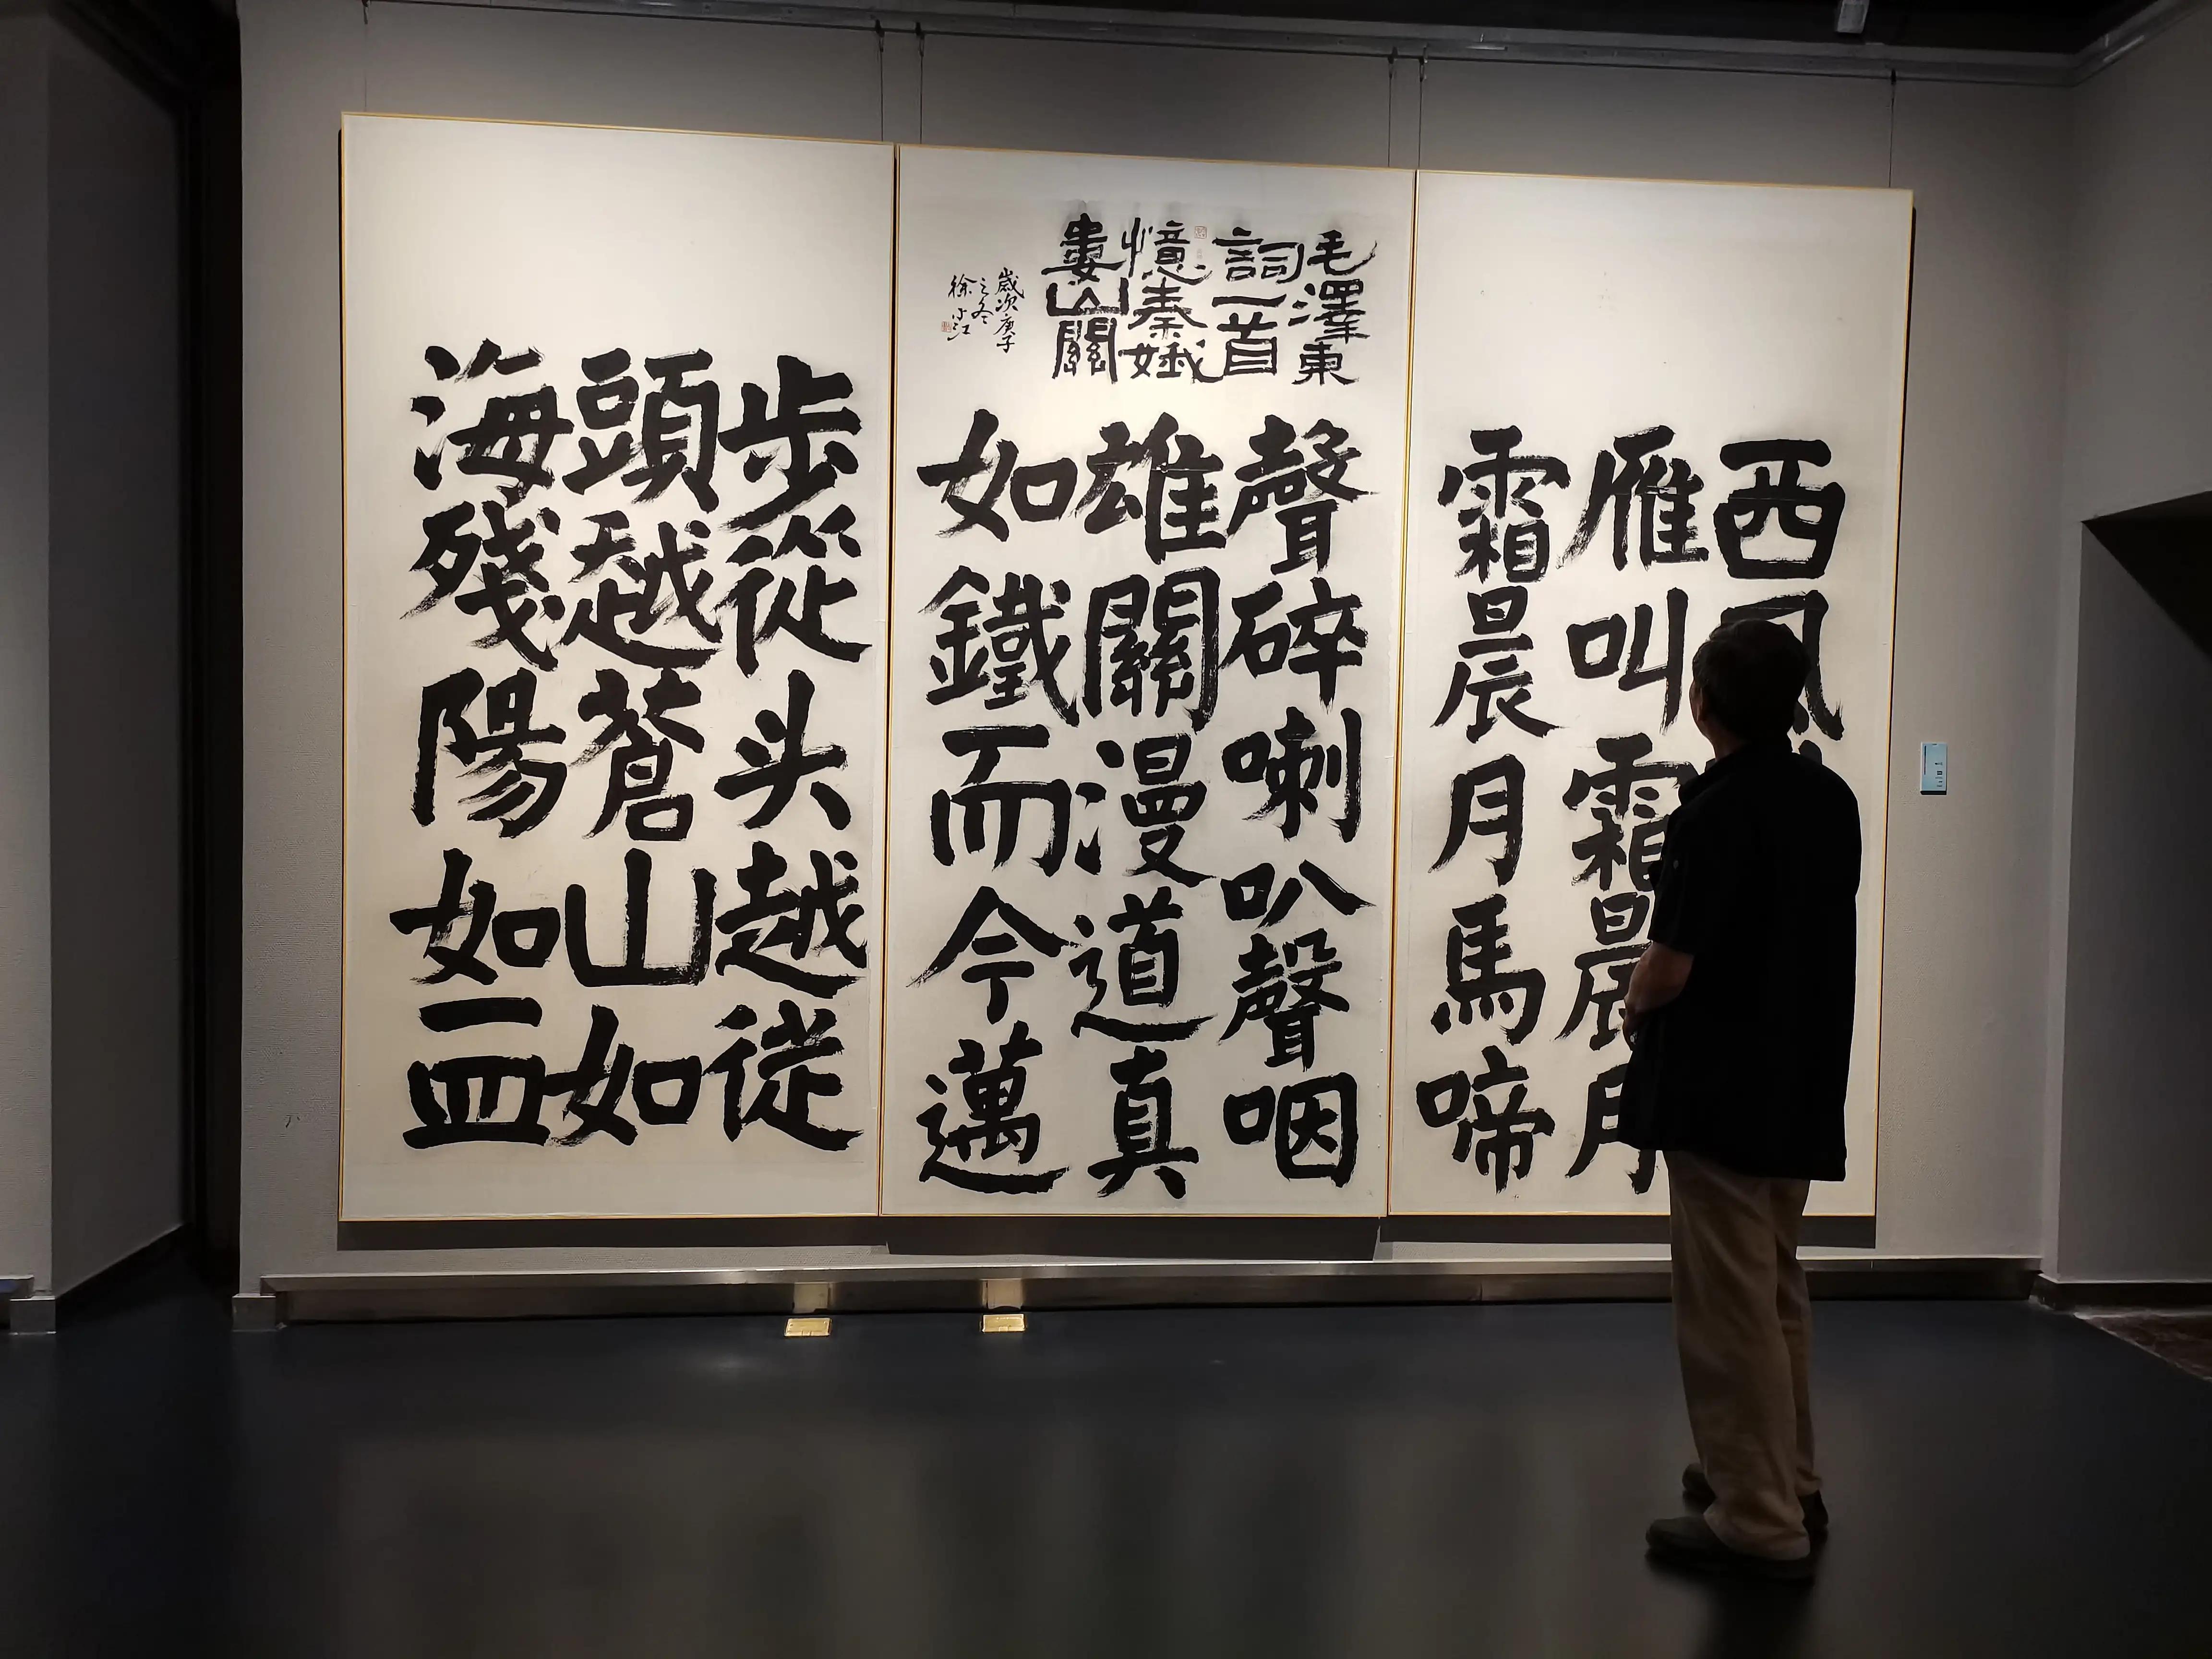 西
雁叫霜晨月
霜晨月馬啼
毛澤東
詞一首
憶秦娥
婁山關
歲次庚子
之冬
徐小江
聲碎喇叭聲咽
雄關漫道真
如鐵而今邁
步從头越従
頭越蒼山如
海殘陽如血